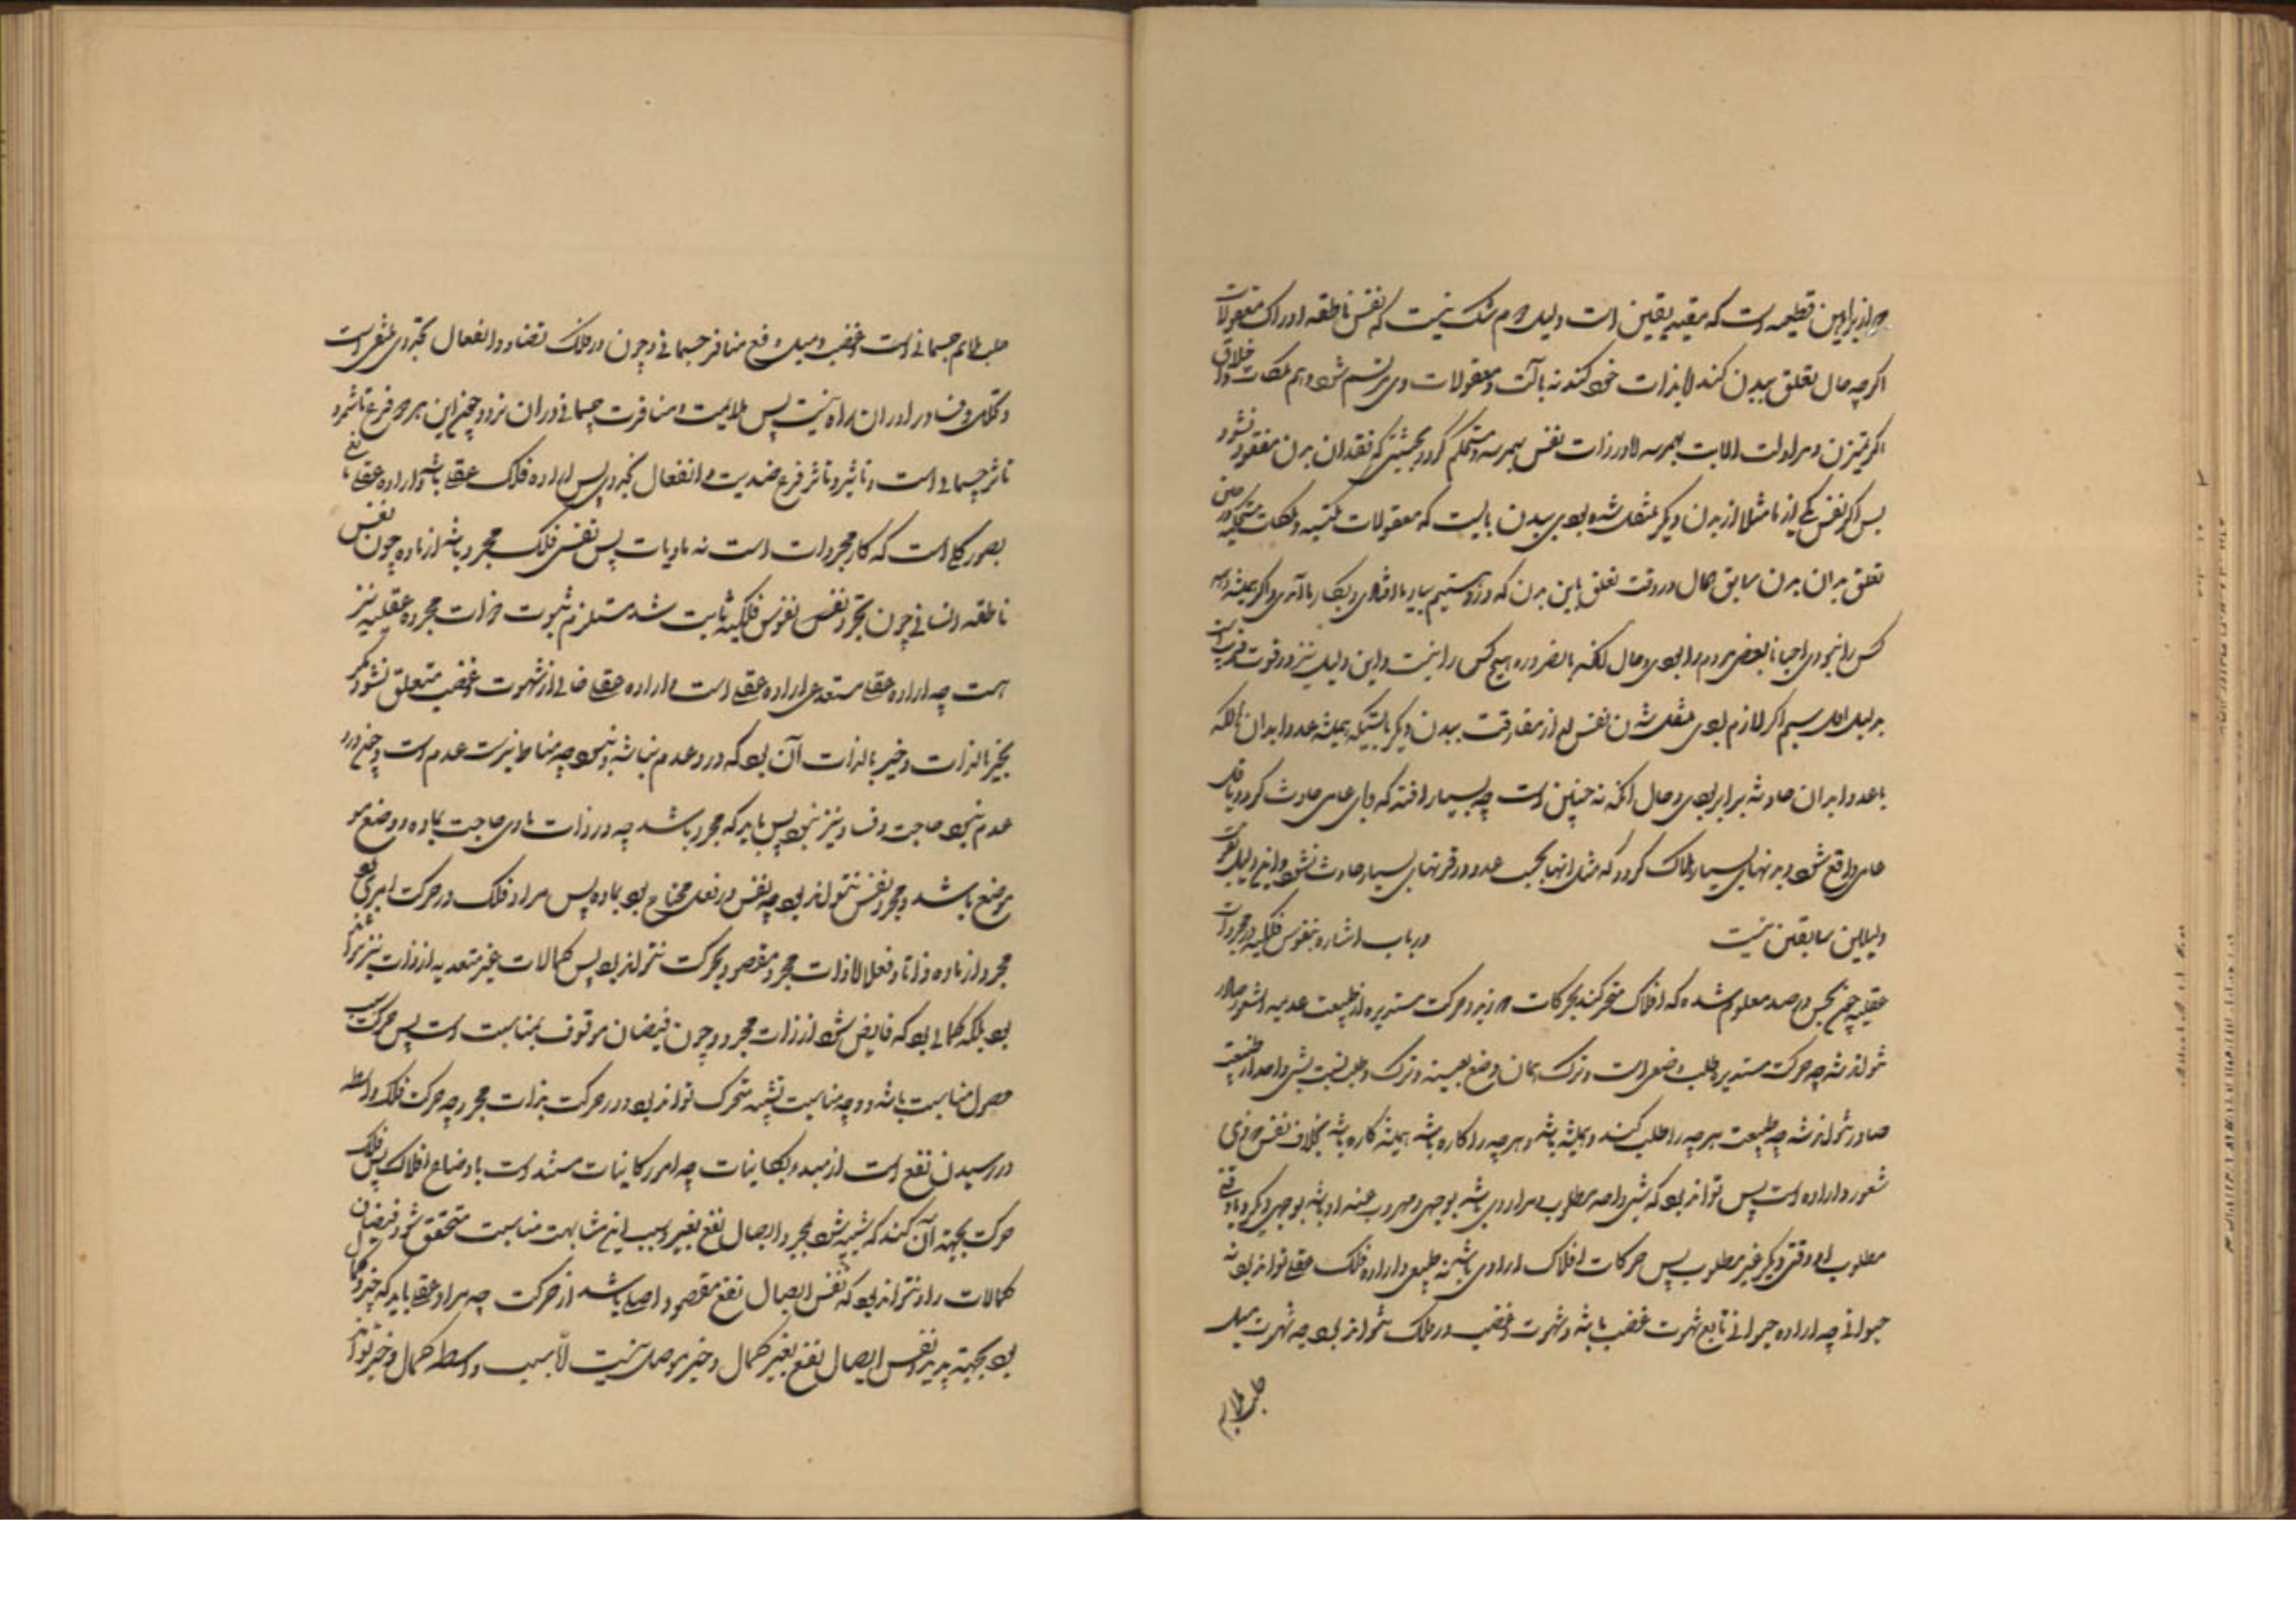 از براهین قطعیه است که مفید یقین است دلیل دوم شک نیست که نفس ناطقه ادراک معقولات
اگرچه حال تعلق ببدن کند لابذات خود کند نه بآلت و معقولات در وی مرتسم شود و هم ملکات و اخلاق
اگر و مزاولت بهمرسد لا در ذات نفس بهمرسد و مستحکم گردد بحیثیتی که بفقدان بدن مفقود نشود
پس اگر نفس یکی از ما مثلا از بدن دیگر منتقل شده بودی ببدن بایست که معقولات مکتسبه و ملکات مستحکمه در حین
تعلق بدان بدن سابق حال در وقت تعلق باین بدن که درو هستیم بیاد ما افتادی و بکار ما آمدی و اگر همیشه و همه
کس را نبودی احیانا بعضی مردم را بودی و حال آنکه بالضروره هیچ کس را نیست و این دلیل نیز در قوت قریب است
بدلیل اول سیم اگر لازم بودی منتقل شدن نفس بعد از مفارقت ببدن دیگر بایستی که همیشه عدد ابدان هالکه
با عدد ابدان حادثه برابر بودی و حال آنکه نه چنین است چه بسیار افتد که وبای عامی حادث گردد یا قتل
عامی واقع شود و بدنهای بسیار هلاک گردد که مثل آنها بحسب عدد در قرنهای بسیار حادث نشود و این دلیل بقوت
دلیلین سابقین نیست در باب اشاره بنفوس فلکیه و مجردات
عقلیه چون بحس و رصد معلوم شده که افلاک متحرکند بحرکات دوریه و حرکت مستدیره از طبیعت عدیم الشعور صادر
نتواند شد چه حرکت مستدیره طلب وضعی است و ترک همان وضع بعینه و ترک و طلب نسبت بشی واحد از طبیعت
صادر نتواند شد چه طبیعت هر چه را طلب کند همیشه باشد و هر چه را کاره باشد همیشه کاره باشد بخلاف نفس که ذی
شعور و اراده است پس تواند بود که شی واحد مطلوب و مراد وی باشد بوجهی و مهروب عنه او باشد بوجهی دیگر و یا وقتی
مطلوب او وقتی دیگر غیر مطلوب پس حرکات افلاک ارادی باشد نه طبیعی و اراده فلک عقلی تواند بود نه
حیوانی چه اراده حیوانی تابع شهوت و غضب باشد و شهوت و غضب در فلک نتواند بود چه شهوت میل
جلب ملایم
جلب ملایم جسمانی است و غضب میل دفع منافر جسمانی و چون در فلک تضاد و انفعال تجددی منتفی است
و فساد را در آن راه نیست پس ملایمت و منافرت جسمانی در آن نرود چون این هر دو فرع تاثیر و
تاثر جسمانی است و تاثیر و تاثر فرع ضدیت و انفعال تجددی پس اراده فلک عقلی باشد و اراده عقلی تابع
تصور کلی است که کار مجردات است نه مادیات پس نفس فلک مجرد باشد از ماده چون نفس
ناطقه انسانی چون تجرد نفوس فلکیه ثابت شد مستلزم ثبوت ذوات مجرده عقلیه نیز
هست چه اراده عقلی مستدعی اراده عقلی است و اراده عقلی خالی از شهوت و غضب متعلق نشود مگر
بخیر بالذات و خیر بالذات آن بود که درو عدم نباشد و نبود چه مناط شریت عدم است و چون درو
عدم نبود حاجت و فساد نیز نبود پس باید که مجرد باشد چه در ذات مادی حاجت بماده و وضع و
موضع باشد و مجرد نفس نتواند بود چه نفس در فعل محتاج بود بماده پس مراد فلک در حرکت امری بود
مجرد از ماده ذاتا و فعلا لا ذات مجرد مقصود بحرکت نتواند بود پس کمالات غیر متعدیه از ذات نیز نتواند
بود بلکه کمالی بود که فایض شود از ذات مجرد و چون فیضان موقوف بمناسبت است پس حرکت سبب
حصول مناسبت باشد و وجه مناسبت تشبه متحرک تواند بود در حرکت بذات مجرد چه حرکت فلک واسطه
در رسیدن نفع است از مبدء بکاینات چه امور کاینات مستند است باوضاع افلاک پس فلک
حرکت بجهة آن کند که شبیه شود بمجرد در ایصال نفع بغیر و بسبب این مشابهت مناسبت متحقق شود و فیضان
کمالات را و نتواند بود که نفس ایصال نفع مقصود اصلی باشد از حرکت چه مراد عقلی باید که خیر و کمال
بود بجهة مرید و نفس ایصال نفع بغیر کمال و خیر موصل نیست الا بسبب و واسطه کمال و خیر تواند